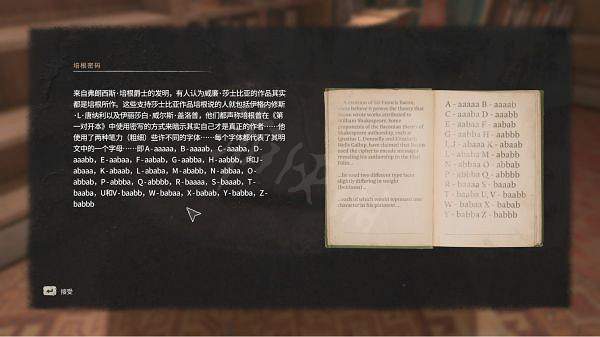 培根密码
来自弗朗西斯·培根爵士的发明，有人认为威廉·莎士比亚的作品其实
都是培根所作。这些支持莎士比亚作品培根说的人就包括伊格内修斯
·L·唐纳利以及伊丽莎白·威尔斯·盖洛普，他们都声称培根曾在《第
一对开本》中使用密写的方式来暗示其实自己才是真正的作者……他
使用了两种笔力（粗细）些许不同的字体……每个字体都代表了其明
文中的一个字母……即 A-aaaaa，B-aaaab，C-aaaba，D-
aaabb，E-aabaa，F-aabab，G-aabba，H-aabbb，I和J-
abaaa，K-abaab，L-ababa，M-ababb，N-abbaa，O-
abbab，P-abbba，Q-abbbb，R-baaaa，S-baaab，T-
baaba，U和V-baabb，W-babaa，X-babab，Y-babba，Z-
babbb
A creation of Sir Francis Bacon,
some believe it proves the theory that
Bacon wrote works attributed to
William Shakespeare. Some
proponents of the Baconian theory of
Shakespeare authorship, such as
Ignatius L. Donnelly and Elizabeth
Wells Gallup, have claimed that Bacon
used the cipher to encode messages
revealing his authorship in the First
Folio...
...he used two different type faces
slightly differing in weight
(boldness)...
...each of which would represent one
character in his plaintext...
A - aaaaa B - aaaab
C - aaaba D - aaabb
E - aabaa F - aabab
G - aabba H - aabbb
I, J - abaaa K - abaab
L - ababa M - ababb
N - abbaa O - abbab
P - abbba Q - abbbb
R - baaaa S - baaab
T - baaba U, V - baabb
W - babaa X - babab
Y - babba Z - babbb
接受